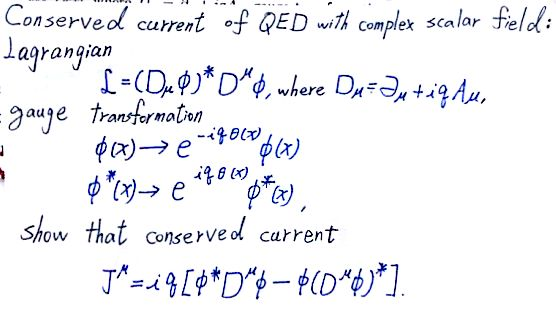 Conserved current of QED with complex scalar field:
Lagrangian
ℒ=(D_μ ϕ)* D^μ ϕ, where D_μ=∂_μ+iqA_μ,
gauge transformation
ϕ(x)→e^{-iqθ(x)} ϕ(x)
ϕ*(x)→e^{iqθ(x)} ϕ*(x),
show that conserved current
J^μ=iq[ϕ*D^μϕ-ϕ(D^μϕ)*].